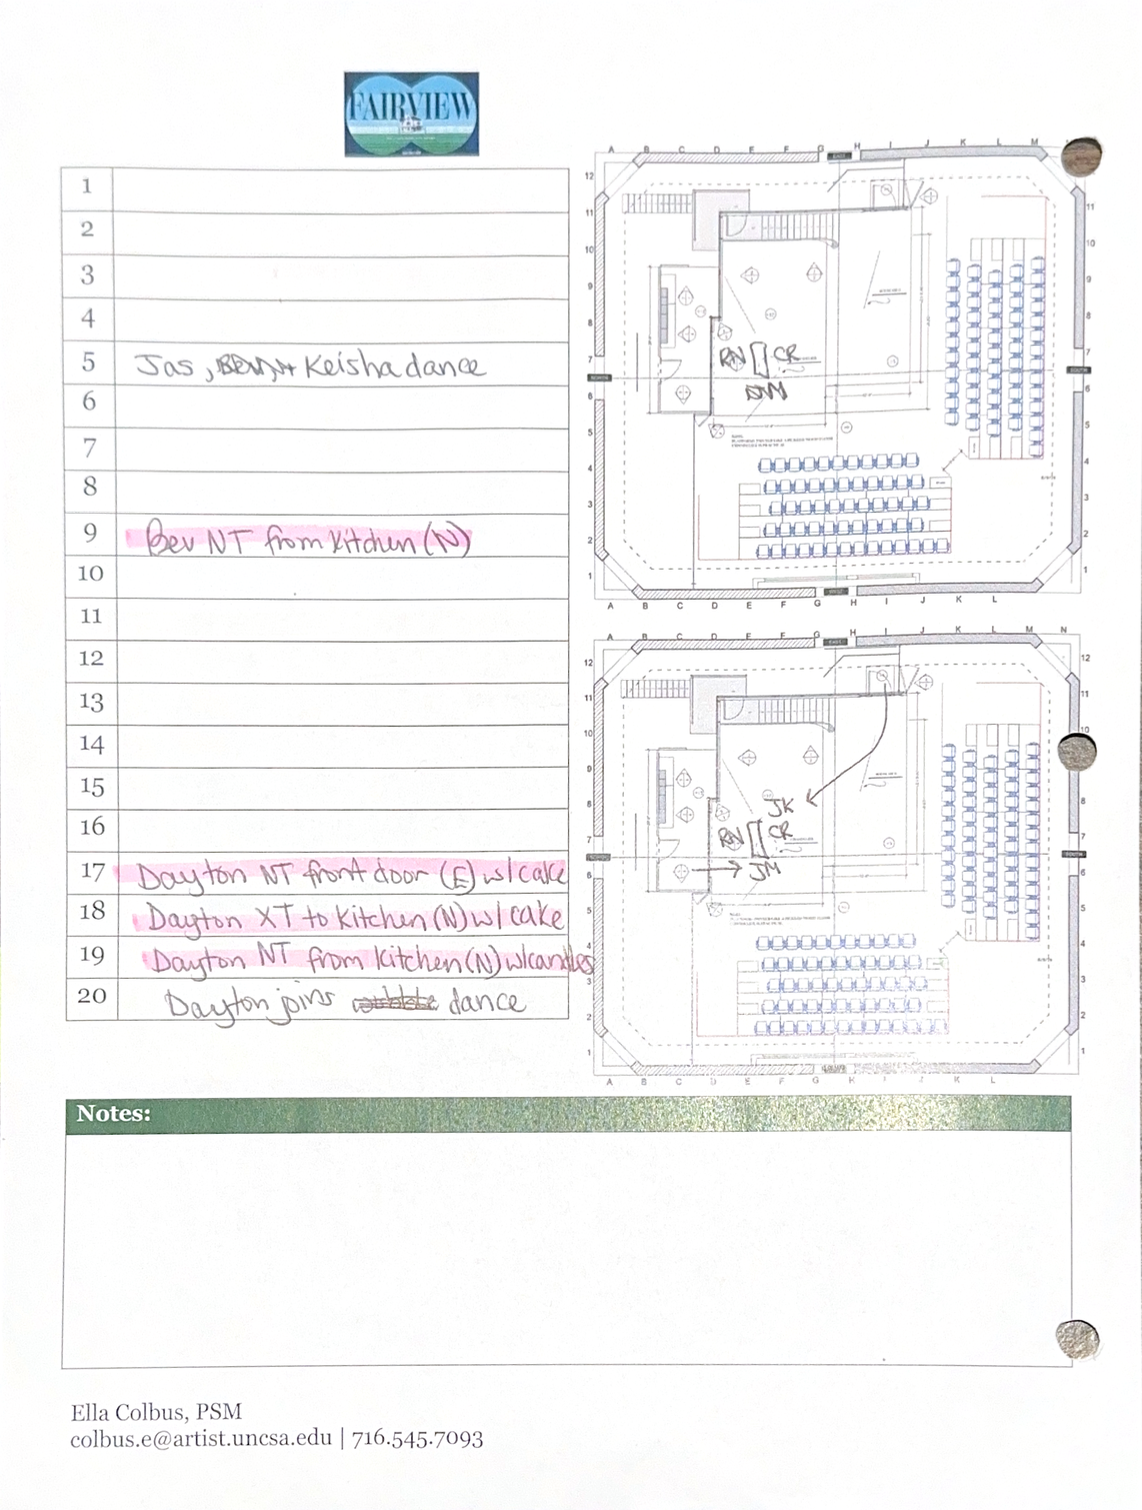 FAIRVIEW
1
2
3
4
5 Jas, Bev, + Keisha dance
6
7
8
9 Bev NT from kitchen (N)
10
11
12
13
14
15
16
17 Dayton NT front door (E) w/ cake
18 Dayton XT to kitchen (N) w/ cake
19 Dayton NT from kitchen (N) w/ candles
20 Dayton joins dance
A B C D E F G H I J K L M
12 11 10 9 8 7 6 5 4 3 2 1
11 10 9 8 7 6 5 4 3 2 1
EAST
SOUTH
RN CR
A B C D E F G H I J K L
A B C D E F G H I J K L M N
12 11 10 9 8 7 6 5 4 3 2 1
12 11 10 9 8 7 6 5 4 3 2 1
EAST
SOUTH
JK
RN CR
JM
A B C D E F G H I J K L
Notes:
Ella Colbus, PSM
colbus.e@artist.uncsa.edu | 716.545.7093